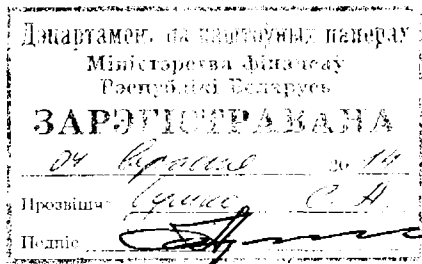 Дэпартамент па каштоўных паперах
Міністэрства фінансаў
Рэспублікі Беларусь
ЗАРЭГІСТРАВАНА
04 20 14
Прозвішча С. А
Подпіс